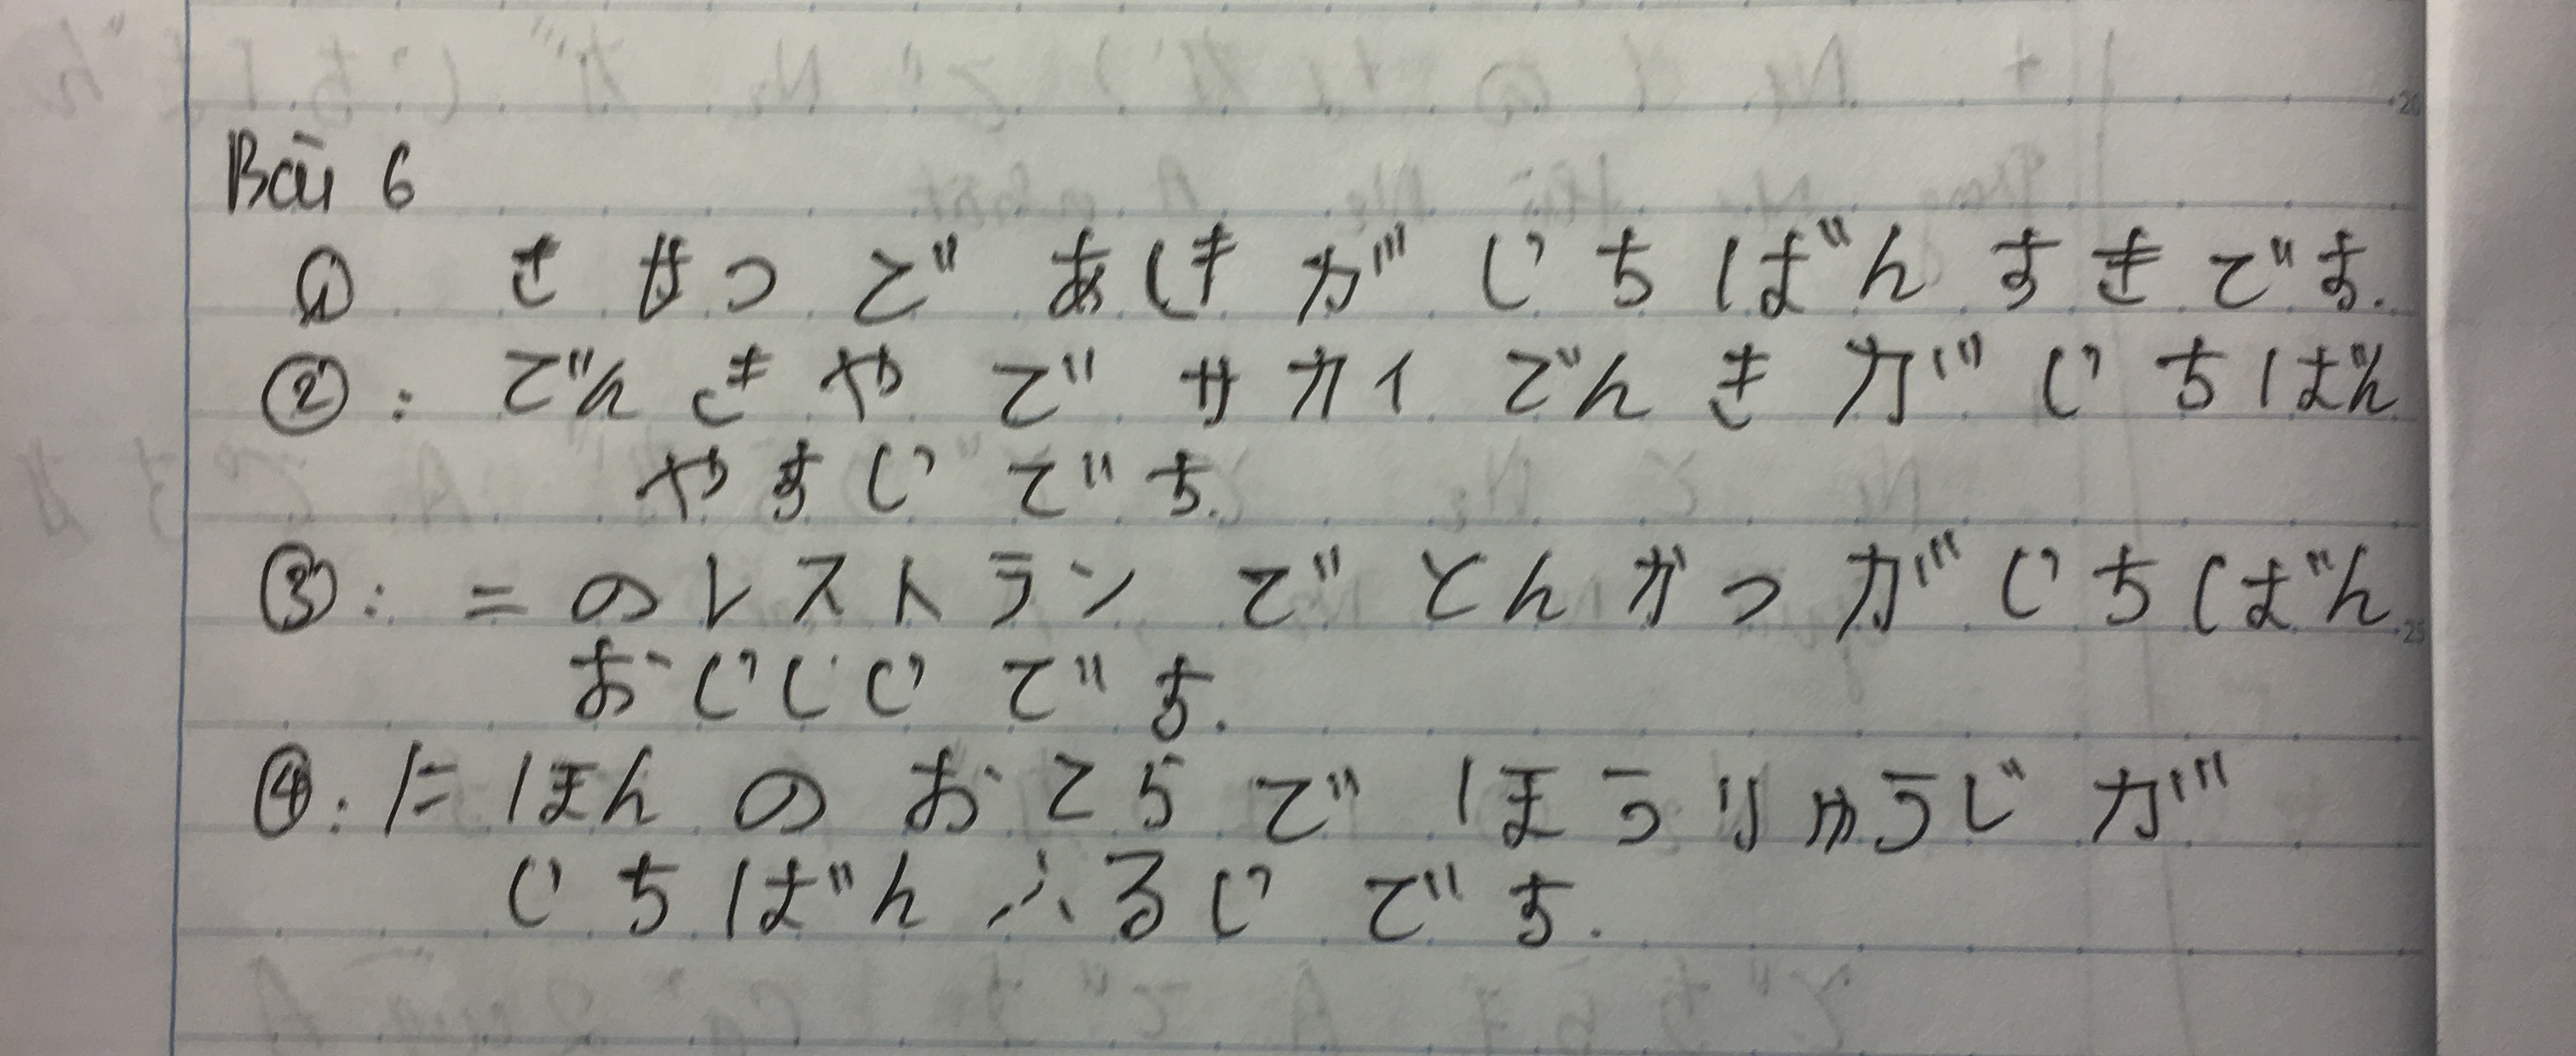 Bài 6
① きせつで あきが いちばん すきです.
②: でんきやで サカイ でんきが いちばん
やすいです.
③: このレストランで とんかつが いちばん
おいしいです.
④: にほんの おてらで ほうりゅうじが
いちばん ふるいです.